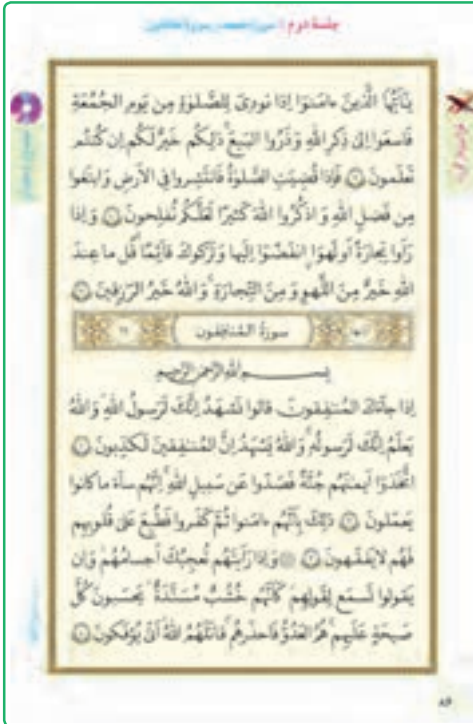 جلسهٔ دوم / سورهٔ جمعه، سورهٔ منافقون
یٰۤاَیُّهَا الَّذینَ ءامَنوۤا اِذا نودِیَ لِلصَّلوٰةِ مِن یَومِ الجُمُعَةِ
فَاسعَوا اِلیٰ ذِکرِ اللّٰهِ وَ ذَرُوا البَیعَ ۚ ذٰلِکُم خَیرٌ لَکُم اِن کُنتُم
تَعلَمونَ ۹ فَاِذا قُضِیَتِ الصَّلوٰةُ فَانتَشِروا فِی الاَرضِ وَ ابتَغوا
مِن فَضلِ اللّٰهِ وَ اذکُرُوا اللّٰهَ کَثیرًا لَعَلَّکُم تُفلِحونَ ۱۰ وَ اِذا
رَاَوا تِجارَةً اَو لَهوًا انفَضّوۤا اِلَیها وَ تَرَکوکَ قآئِمًا ۚ قُل ما عِندَ
اللّٰهِ خَیرٌ مِنَ اللَّهوِ وَ مِنَ التِّجارَةِ ۚ وَ اللّٰهُ خَیرُ الرّٰزِقینَ ۱۱
سورَةُ المُنافِقون
بِسمِ اللّٰهِ الرَّحمٰنِ الرَّحیمِ
اِذا جآءَکَ المُنٰفِقونَ قالوا نَشهَدُ اِنَّکَ لَرَسولُ اللّٰهِ ۗ وَ اللّٰهُ
یَعلَمُ اِنَّکَ لَرَسولُهٗ وَ اللّٰهُ یَشهَدُ اِنَّ المُنٰفِقینَ لَکٰذِبونَ ۱
اِتَّخَذوۤا اَیمٰنَهُم جُنَّةً فَصَدّوا عَن سَبیلِ اللّٰهِ ۚ اِنَّهُم سآءَ ما کانوا
یَعمَلونَ ۲ ذٰلِکَ بِاَنَّهُم ءامَنوا ثُمَّ کَفَروا فَطُبِعَ عَلیٰ قُلوبِهِم
فَهُم لا یَفقَهونَ ۳ وَ اِذا رَاَیتَهُم تُعجِبُکَ اَجسامُهُم ۖ وَ اِن
یَقولوا تَسمَع لِقَولِهِم ۖ کَاَنَّهُم خُشُبٌ مُسَنَّدَةٌ ۖ یَحسَبونَ کُلَّ
صَیحَةٍ عَلَیهِم ۚ هُمُ العَدُوُّ فَاحذَرهُم ۚ قاتَلَهُمُ اللّٰهُ ۖ اَنّیٰ یُؤفَکونَ ۴
۸۶